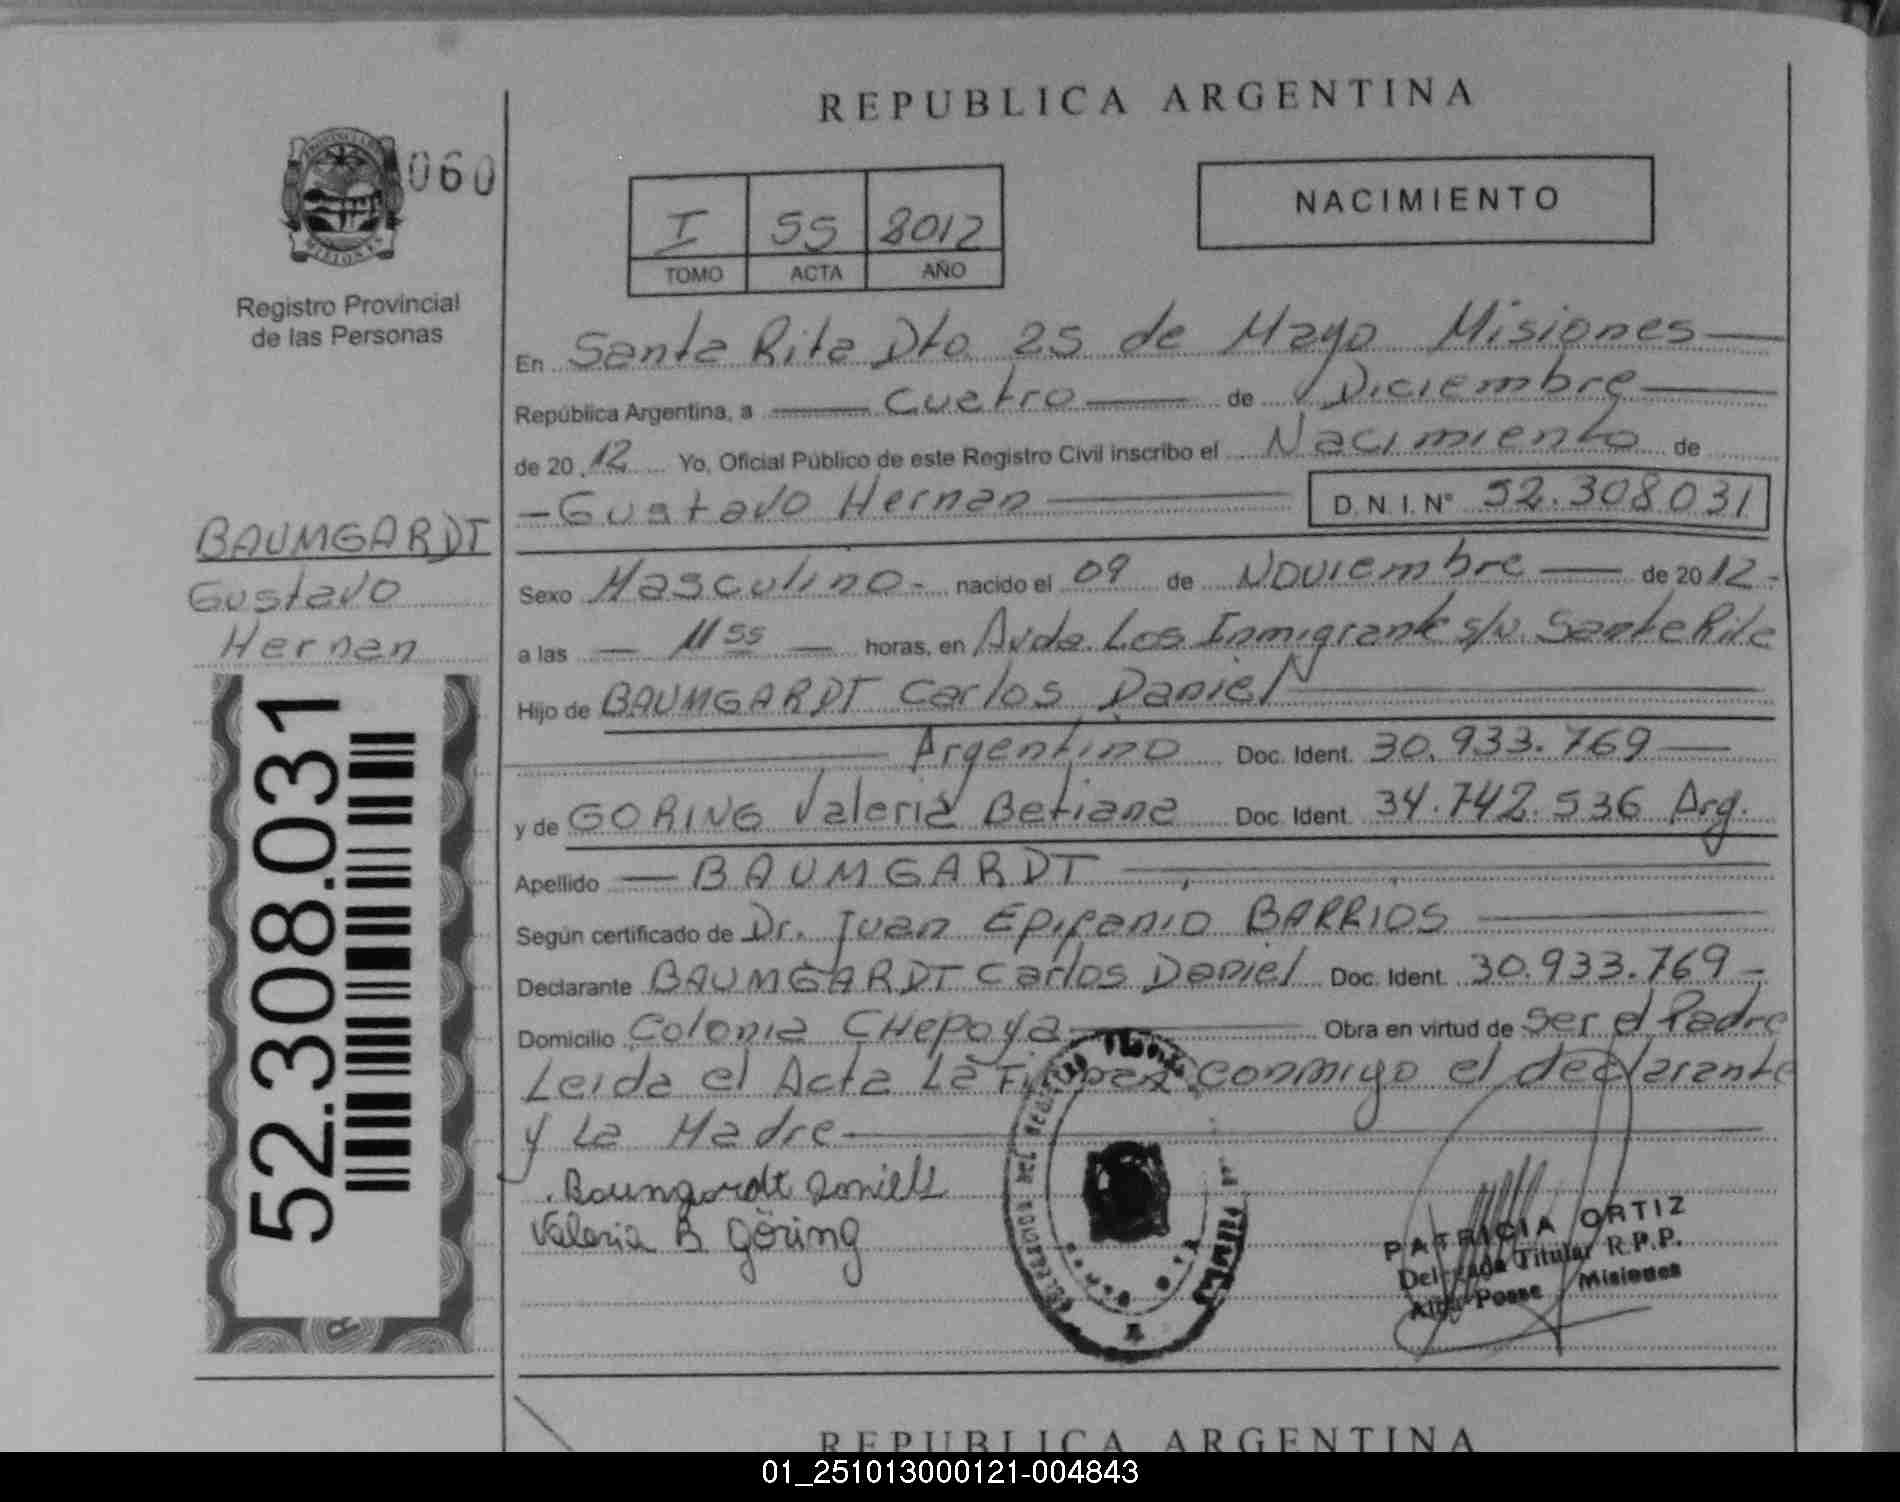 REPUBLICA ARGENTINA
PROVINCIA DE
MISIONES
060
Registro Provincial
de las Personas
I 55 2012
TOMO ACTA AÑO
NACIMIENTO
En Santa Rita Dto 25 de Mayo Misiones
República Argentina, a cuatro de Diciembre
de 20 12 Yo, Oficial Público de este Registro Civil inscribo el Nacimiento de
Gustavo Hernan D.N.I. N° 52.308031
BAUMGARDT
Gustavo
Hernan
52.308.031
Sexo Masculino nacido el 09 de Noviembre de 20 12
a las 11 55 horas, en Avda. Los Inmigrantes s/n. Santa Rita
Hijo de BAUMGARDT Carlos Daniel
Argentino Doc. Ident. 30.933.769
y de GORING Valeria Betiana Doc. Ident. 34.742.536 Arg.
Apellido BAUMGARDT
Según certificado de Dr. Juan Epifanio BARRIOS
Declarante BAUMGARDT Carlos Daniel Doc. Ident. 30.933.769
Domicilio Colonia CHepoya Obra en virtud de ser el Padre
Leida el Acta La Firman conmigo el declarante
y La Madre
Baumgardt
Valeria B Göring
PATRICIA ORTIZ
Delegada Titular R.P.P.
Alba Posse Misiones
REPUBLICA ARGENTINA
01_251013000121-004843